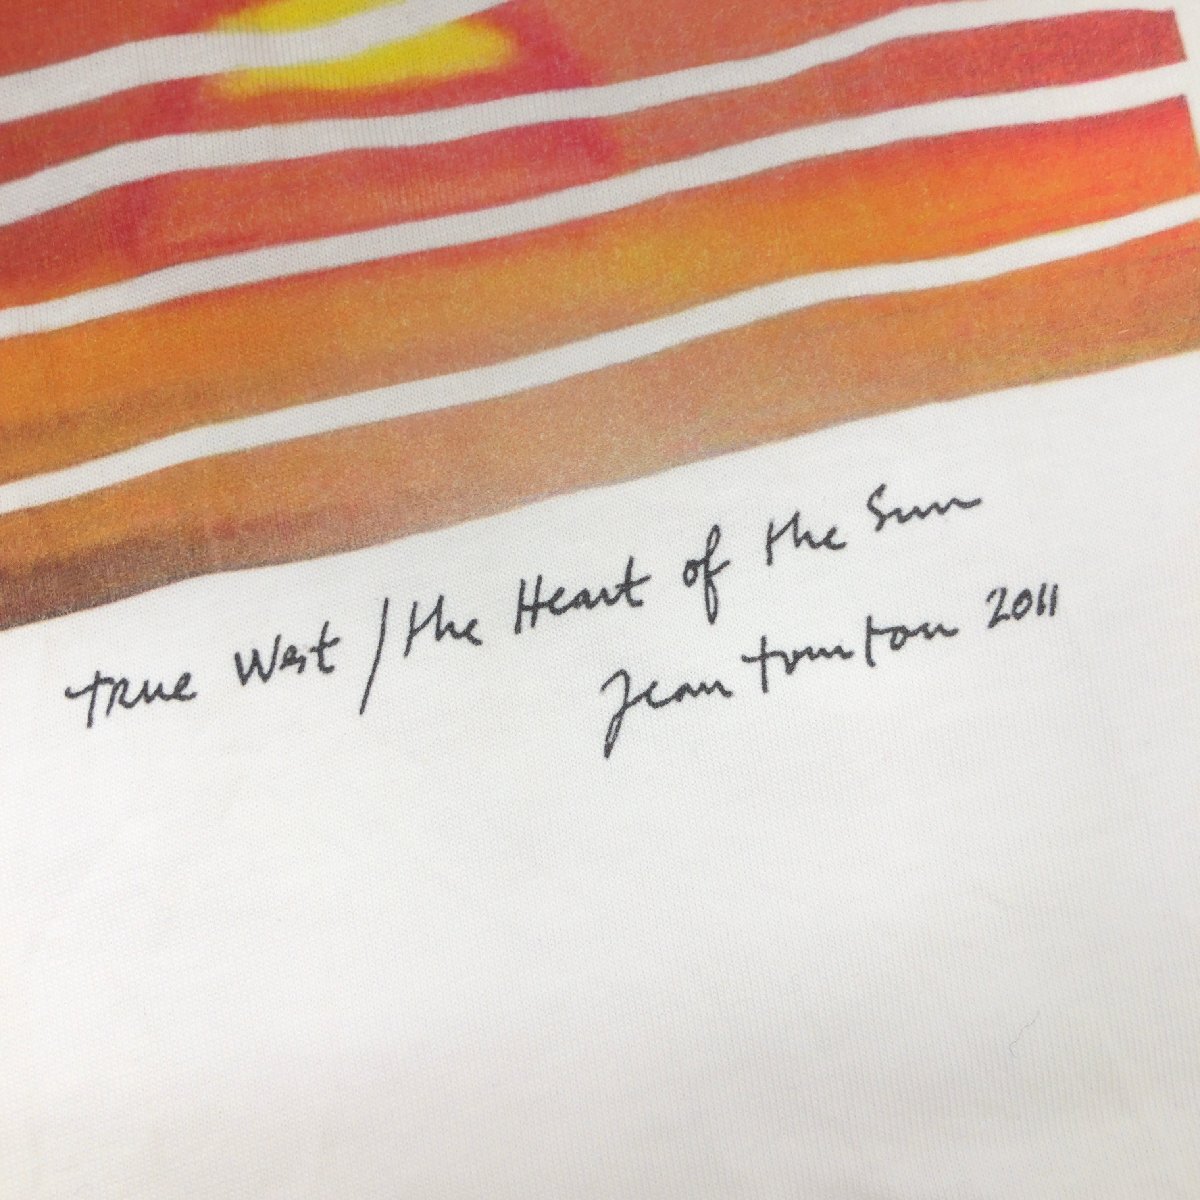 True West / the Heart of the Sun
Jean Touitou 2011